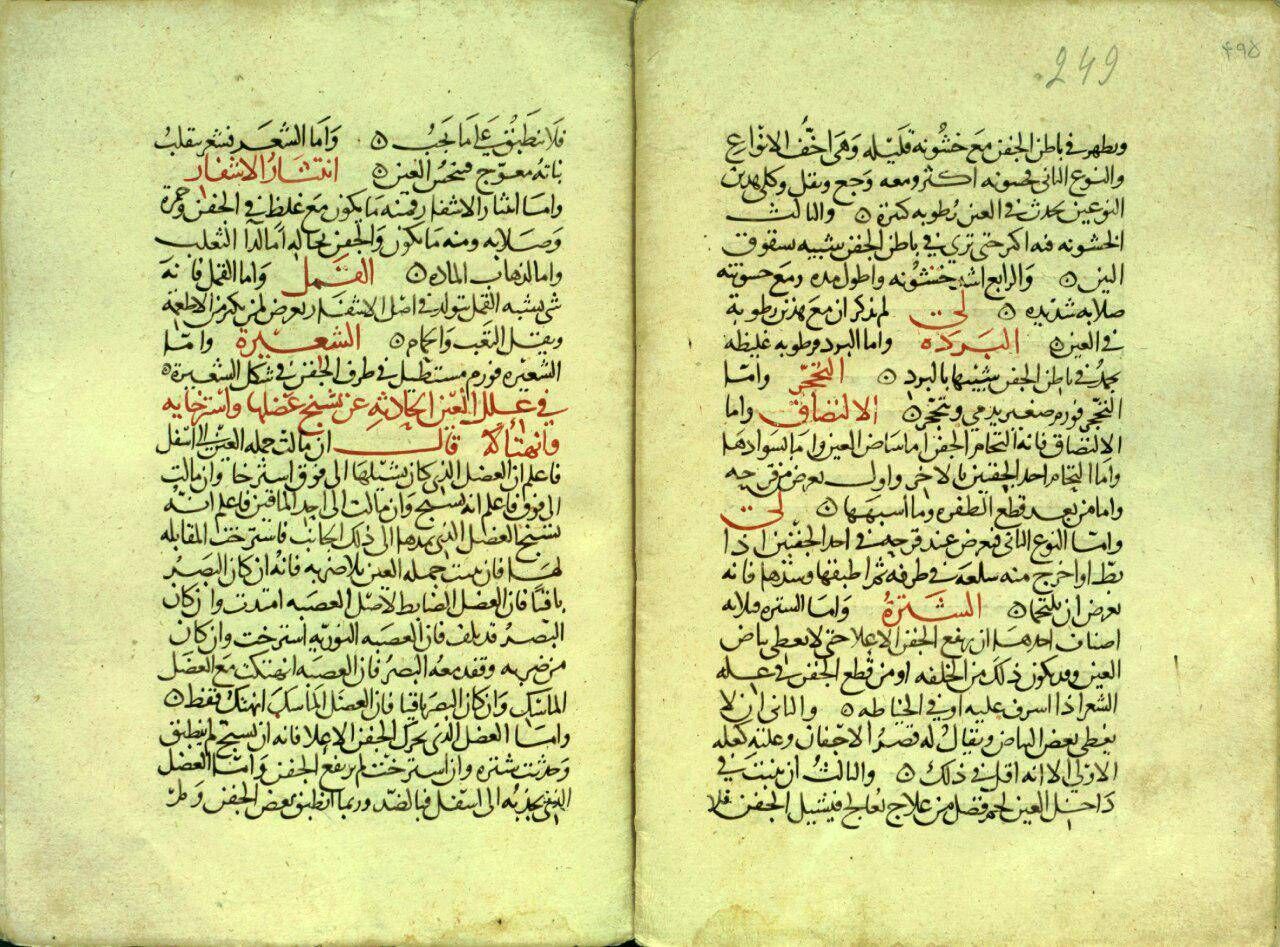 249
۴۹۵
ويظهر في باطن الجفن مع خشونه قليله وهي اخف الانواع
والنوع الثاني خشونه اكثر ومعه وجع وثقل وكلي هذين
النوعين يحدث في العين رطوبه كثيرة ه والثالث
الخشونه فيه اكثر حتى ترى في باطن الجفن شبيه بشقوق
التين ه والرابع اشد خشونه واطول مده ومع خشونته
صلابه شديده ه لى لم يذكر ان مع هذين رطوبة
في العين ه البرده واما البرد فرطوبه غليظه
يجمد في باطن الجفن شبيها بالبرد ه التحجر واما
التحجر فورم صغير يدمي ويتحجر ه الالتصاق واما
الالتصاق فانه التحام الجفن اما ببياض العين واما بسوادها
واما التحام احد الجفنين بالاخر والاول يعرض من قرحه
واما من بعد قطع الظفره وما اشبهها ه لى
واما النوع الثاني فيعرض عند قرحه في احد الجفنين اذا
بط او اخرج منه سلعه في طرفه ثم اطبقها وشدها فانه
يعرض ان يلتحما ه الشترة واما الشتره فثلاثه
اصناف احدها ان يرتفع الجفن الاعلا حتى لا يغطي بياض
العين وقد يكون ذلك من الخلقه او من قطع الجفن في عله
الشعر اذا اسرف عليه او في الخياطه ه والثاني ان لا
يغطي بعض البياض ويقال له قصر الاجفان وعلته كعله
الاولى الا انه اقل في ذلك ه والثالث ان ينبت في
داخل العين لحم فضل من علاج يعالج فيشيل الجفن فلا
فلا ينطبق على ما يجب ه واما الشعر فشعر ينقلب
نباته معوج فينخس العين ه انتثار الاشفار
واما انتثار الاشفار فمنه ما يكون مع غلظ في الجفن وحمرة
وصلابه ومنه ما يكون والجفن بحاله اما لداء الثعلب
واما لذهاب الماده ه القمل واما القمل فانه
شي يشبه القمل يتولد في اصل الاشفار يعرض لمن يكثر من الاطعمة
ويقل التعب والحمام ه الشعيرة واما
الشعيره فورم مستطيل في طرف الجفن في شكل الشعيرة ه
في علل العين الحادثه عن تشنج عضلها واسترخايه
وانهتاكه قال ان مالت جمله العين الى اسفل
فاعلم ان العضل الذي كان يشيلها الى فوق استرخا وان مالت
الى فوق فاعلم انه تشنج وان مالت الى احد الماقين فاعلم انه
تشنج العضل الذي يمدها الى ذلك الجانب فاسترخت المقابله
لها فان نتت جمله العين بلا ضربه فانه ان كان البصر
باقيا فان العضل الضابط لاصل العصبه امتدت وان كان
البصر قد تلف فان العصبه النوريه استرخت وان كان
من ضربه وفقد معه البصر فان العصبه انهتكت مع العضل
الماسك وان كان البصر باقيا فان العضل الماسك انهتك فقط ه
واما العضل الذي يحرك الجفن الاعلا فانه ان تشنج لم ينطبق
وحدثت شتره وان استرخت لم يرتفع الجفن واما العضل
الذي يجذبه الى اسفل فبالضد وربما انطبق بعض الجفن